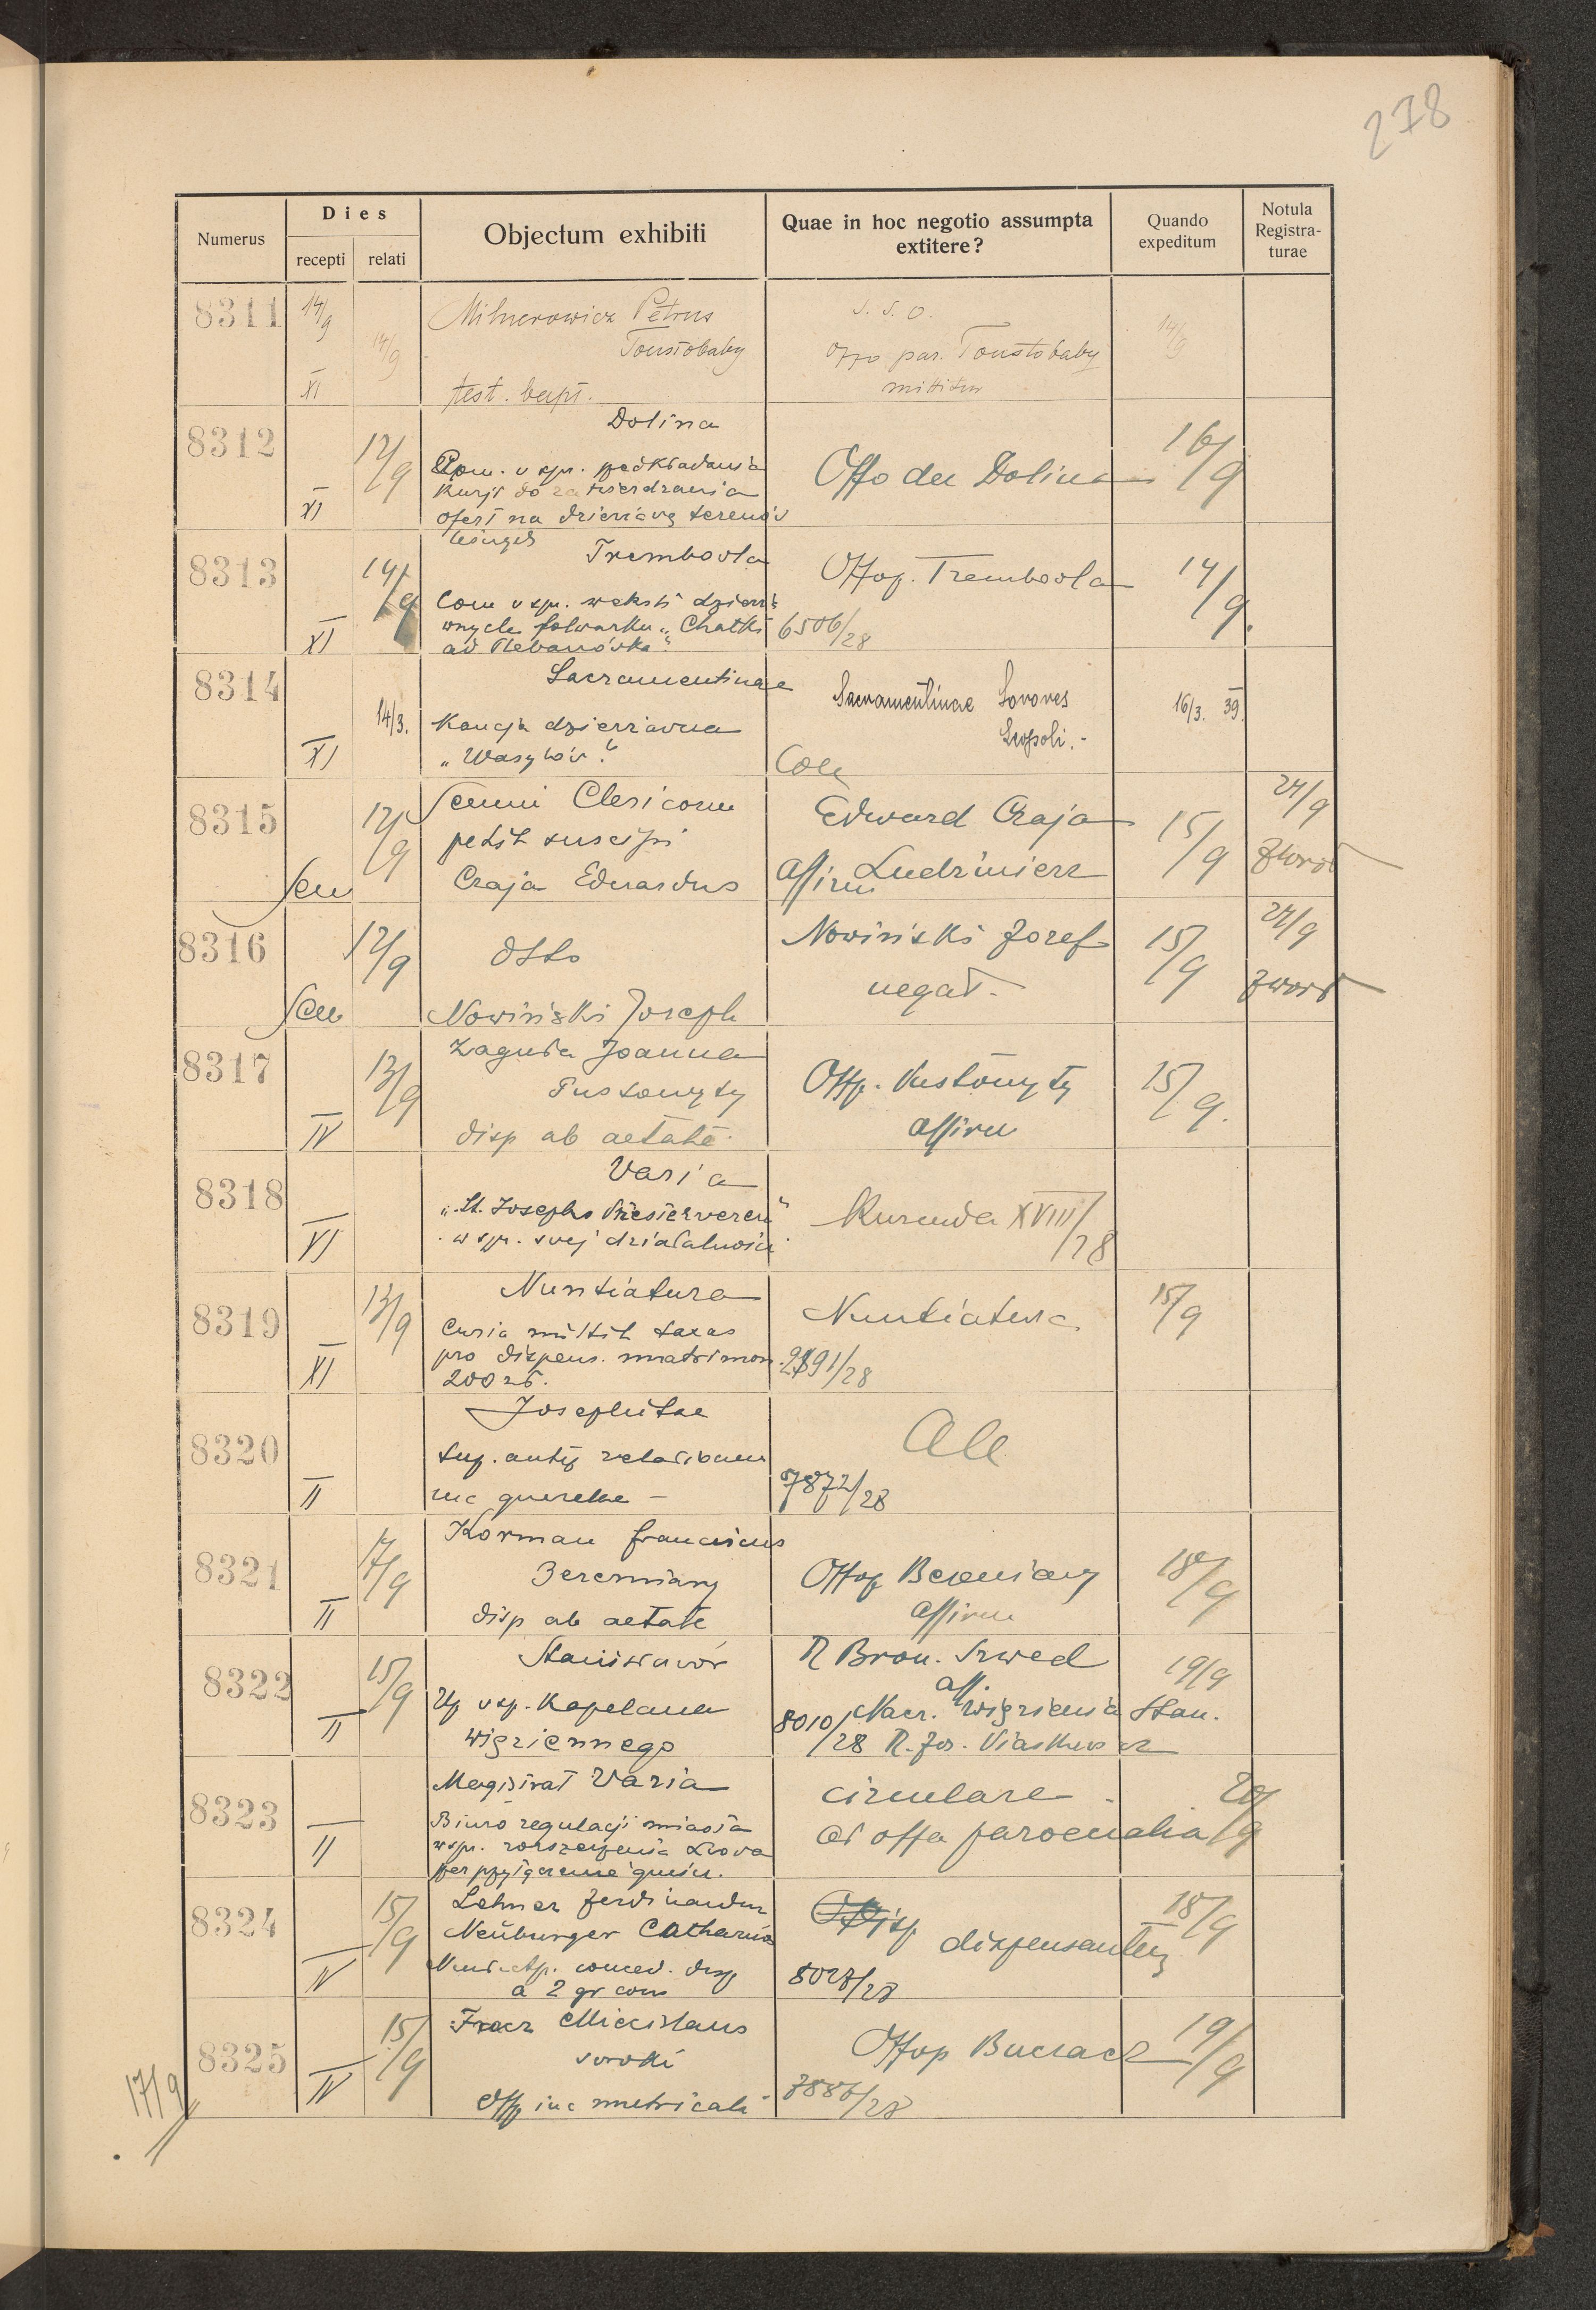 278
Numerus
Dies
recepti
relati
Objectum exhibiti
Quae in hoc negotio assumpta
extitere?
Quando
expeditum
Notula
Registra-
turae
8311
14/9
XI
14/9
Milnerowicz Petrus
Toustobaby
test. bapt.
J. S. O.
Offo par. Toustobaby
mittitur
14/9
8312
XI
12/9
Dolina
w spr. podkładania
Kurji do zatwierdzania
ofert na dzierżawę terenów
leśnych
Offo dec Dolina
16/9
8313
XI
14/9
Trembovla
Com w spr. weksli dzierża
wnych folwarku "Chatki
ad Plebanówka"
Offop. Trembovla
6506/28
14/9.
8314
XI
14/3.
Sacramentinae
Kaucja dzierżawna
"Wasylów"
Sacramentinae Sorores
Leopoli.-
16/3. 39.
8315
Sem
12/9
Semin Clericorum
petit suscipi
Czaja Eduardus
Edward Czaja
Ludzimierz
affirm
15/9
24/9
zwrot
8316
Sem
12/9
dtto
Nowiński Joseph
Nowiński Józef
negat.-
15/9
24/9
zwrot
8317
IV
13/9
Zaguła Joanna
Pustomyty
disp ab aetate.
Offp. Pustomyty
affirm
15/9.
8318
VI
Varia
"St. Josephs Priesterverein"
w spr. swej działalności
Kurenda XVIII/28
8319
XI
13/9
Nuntiatura
Curia mittit taxas
pro dispens. matrimon.
200 zł.
Nuntiatura
2891/28
15/9
8320
II
Josephitae
querelae -
7872/28
8321
II
17/9
Korman Franciscus
Beremiany
disp ab aetate
Offop Beremiany
affirm
18/9
8322
II
15/9
Stanisławów
w sp. Kapelana
więziennego
R Bron. Szwed
aff.
8010/28 Nacz. więzienia Stan.
19/9
8323
II
Magistrat Varia
Biuro regulacji miasta
w spr. rozszerzenia Lwowa
circulare
ad offa parochialia
20/9
8324
IV
15/9
Lehner Ferdinandus
Neuburger Catharina
conced. disp
a 2 gr cons
dispensantur
8028/28
18/9
8325
IV
15/9
Miecislaus
Soroki
Offp in c metricali
Offop Buczacz
7886/28
19/9
17/9